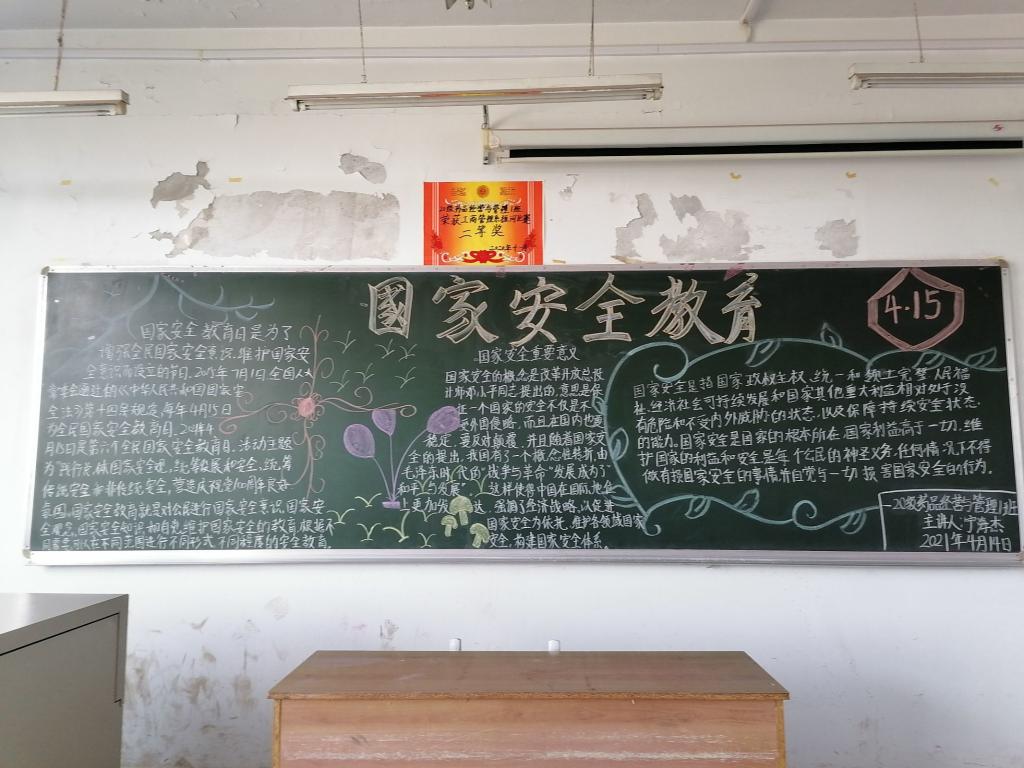 20级药品经营与管理1班
二等奖
國家安全教育
4.15
国家安全教育日是为了
增强全民国家安全意识，维护国家安
全意识而设立的节日。2015年7月1日，全国人大
常委会通过的《中华人民共和国国家安
全法》第十四条规定，每年4月15日
为全民国家安全教育日。
月15日是第六个全民国家安全教育日。活动主题
为"践行总体国家安全观，统筹发展和安全，统筹
传统安全和非传统安全，营造庆祝党100周年良好
氛围。国家安全教育就是对公民进行国家安全意识、国家安
国家安全重要意义
国家安全的概念是改革开放总设
计师邓小平同志提出的，意思是保
证一个国家的安全不仅是不
受外国侵略，而且在国内也要
稳定，要反对颠覆，并且随着国家安
全的提出，我国有了一个概念性转折，由
毛泽东时代的"战争与革命""发展成为了"
和平与发展"，这样使得中国在国际地位
上更加发达，强调了经济战略，以促进
国家安全为依托，维护各领域国家
安全，构建国家安全体系。
国家安全是指国家政权、主权、统一和领土完整、人民福
祉、经济社会可持续发展和国家其他重大利益相对处于没
有危险和不受内外威胁的状态，以及保障持续安全状态
的能力。国家安全是国家的根本所在，国家利益高于一切，维
护国家的利益和安全是每个公民的神圣义务，任何情况下不得
做有损国家安全的事情并自觉与一切损害国家安全的行为。
20级药品经营与管理1班
主讲人：宁海杰
2021年4月14日